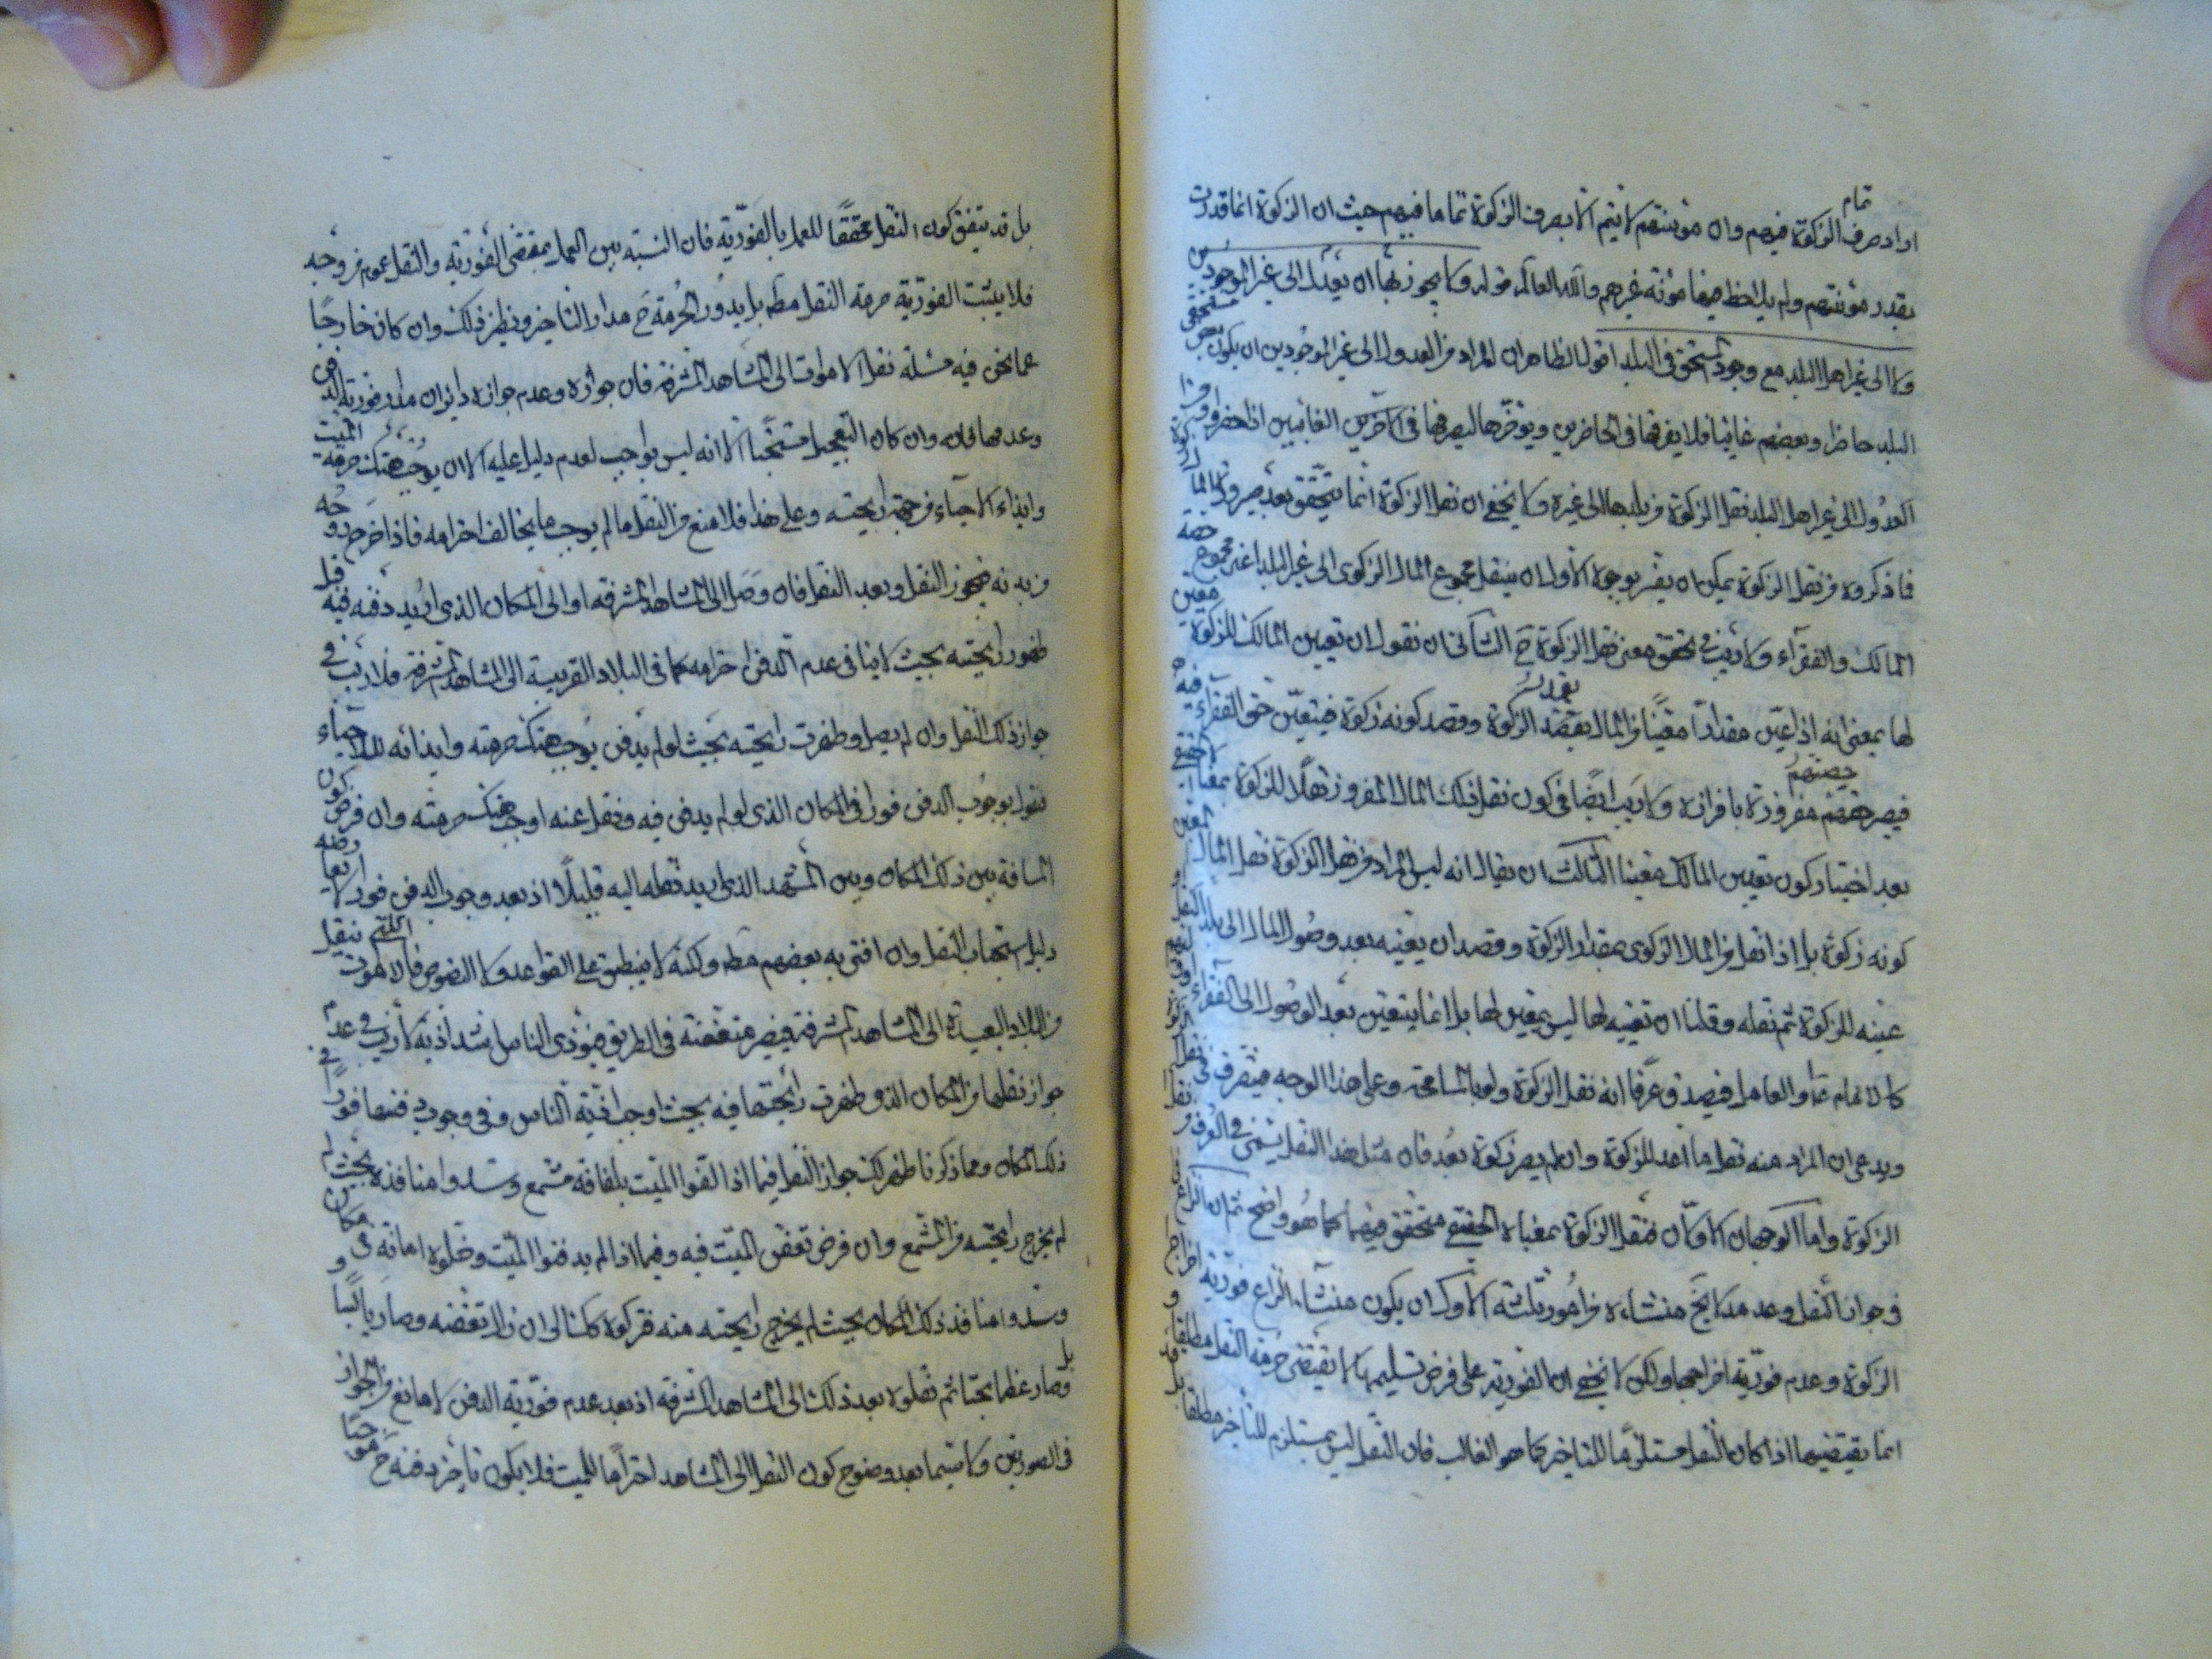 اراد صرف تمام الزكوة فيهم وان مؤنتهم لا يتم الا بصرف الزكوة تماما فيهم حيث ان الزكوة انما قدرت
بقدر مؤنتهم ولم يلاحظ فيها مؤنة غيرهم والله العالم قوله ولا يجوز بها ان يعدل الى غير الموجود
ولا الى غير اهل البلد مع وجود المستحق فى البلد اقول الظاهر ان المراد من العدول الى غير الموجودين ان يكون بعض مستحقى
البلد حاضرا وبعضهم غايبا فلا يفرقها فى الحاضرين ويؤخرها ليصرفها فى الاخرين الغائبين اذا حضروا
العدول الى غير اهل البلد نقل الزكوة من بلدها الى غيره ولا يخفى ان نقل الزكوة انما يتحقق بعد صيرورة المال زكوة
فما ذكروه من نقل الزكوة يمكن ان يقرر بوجوه الاول ان ينقل مجموع المال الزكوى الى غير البلد اعنى مجموع حصة
المالك والفقراء ولا ريب فى تحقق معنى نقل الزكوة ح الثانى ان نقول ان تعيين المالك للزكوة معين
لها بمعنى انه اذا عين مقدارا معينا من المال بقصد الزكوة وقصد كونه زكوة فيتعين حق الفقراء فيه
فيصير حقهم حصتهم مفروزة بافرازه ولا ريب ايضا فى كون نقل ذلك المال المفروز نقلا للزكوة بمعناه الحقيقى
بعد اختيار كون تعيين المالك معينا الثالث ان يقال انه ليس المراد من نقل الزكوة نقل المال المعين
كونه زكوة بل اذا نقل من المال الزكوى بمقدار الزكوة وقصد ان يعينه بعد وصول المال الى بلد النقل
عينه للزكوة ثم نقله وقلنا ان تعيينه لها ليس بمعين لها بل انما يتعين بعد الوصول الى الفقراء
كالامام او العامل فيصدق عرفا انه نقل الزكوة ولو بالمسامحة وعلى هذا الوجه فيتصرف فى نقل
ويدعى ان المراد منه نقل ما اعد للزكوة وان لم يصر زكوة بعد فان مثل هذا النقل يسمى فى العرف نقل
الزكوة واما الوجهان الاولان فنقل الزكوة بمعناه الحقيقى متحقق فيهما كما هو واضح ثم ان النزاع
فى جواز النقل وعدمه لا يخ منشاءه من امور ثلثة الاول ان يكون منشأ النزاع فورية اخراج
الزكوة وعدم فورية اخراجها ولكن لا يخفى ان الفورية على فرض تسليمها لا يقتضى حرمة النقل مطلقا
انما يقتضيها اذا كان النقل مستلزما للتاخير كما هو الغالب فان النقل ليس بمستلزم للتأخير مطلقا بل
بل قد يتفق كون النقل محققا للعمل بالفورية فان النسبة بين العمل بمقتضى الفورية والنقل عموم من وجه
فلا يثبت الفورية حرمة النقل مطه بل يدور الحرمة ح مدار التاخير ونظير ذلك وان كان خارجا
عما نحن فيه مسئلة نقل الاموات الى المشاهد المشرفة فان جوازه وعدم جوازه دايران مدار فورية الدفن
وعدمها فانه وان كان التعجيل مستحبا الا انه ليس بواجب لعدم دليل عليه الا ان يوجب هتك حرمة الميت
وايذاء الاحياء من جهة رايحته وعلى هذا فلا منع من النقل ما لم يوجب ما يخالف احترامه فاذا خرج روحه
من بدنه فيجوز النقل وبعد النقل فان وصل الى المشاهد المشرفة او الى المكان الذى اريد دفنه فيه قبل
ظهور رايحته بحيث لا ينافى عدم الدفن احترامه كما فى البلاد القريبة الى المشاهد المشرفة فلا ريب فى
جواز ذلك النقل وان لم يصل وظهرت رايحته بحيث لو لم يدفن يوجب هتك حرمته وايذائه للاحياء
نقول بوجوب الدفن فورا فى المكان الذى لو لم يدفن فيه ونقل عنه اوجب هتك حرمته وان فرض كون
المسافة بين ذلك المكان وبين المشهد الذى اريد نقله اليه قليلا اذ بعد وجوب الدفن فورا لا يعارضه
دليل استحباب النقل وان افتى به بعضهم مطه ولكنه لا ينطبق على القواعد ولا النصوص فالاموات اللتى ينقل
من البلاد البعيدة الى المشاهد المشرفة فيصير متعفنة فى الطريق فيؤذى الناس اشد اذية لا ريب فى عدم
جواز نقلها من المكان الذى ظهرت رايحتها فيه بحيث اوجب اذية الناس وفى وجوب دفنها فورا فى
ذلك المكان ومما ذكرنا ظهر لك جواز النقل فيما اذا لفوا الميت بلفافة مشمع وسدوا منافذه بحيث لم
لم يخرج رايحته من المشمع وان فرض تعفن الميت فيه وفيما اذا لم يدفنوا الميت وخلوه امانة فى مكان
وسدوا منافذ ذلك المكان بحيث لم يخرج رايحته منه فتركوه كك الى ان زال تعفنه وصار يابسا و
بل وصار عظما بحتا ثم نقلوه بعد ذلك الى المشاهد المشرفة اذ بعد عدم فورية الدفن لا مانع من الجواز
فى الصورتين ولا سيما بعد وضوح كون النقل الى المشاهد احتراما للميت فلا يكون تأخير دفنه ح موجبا